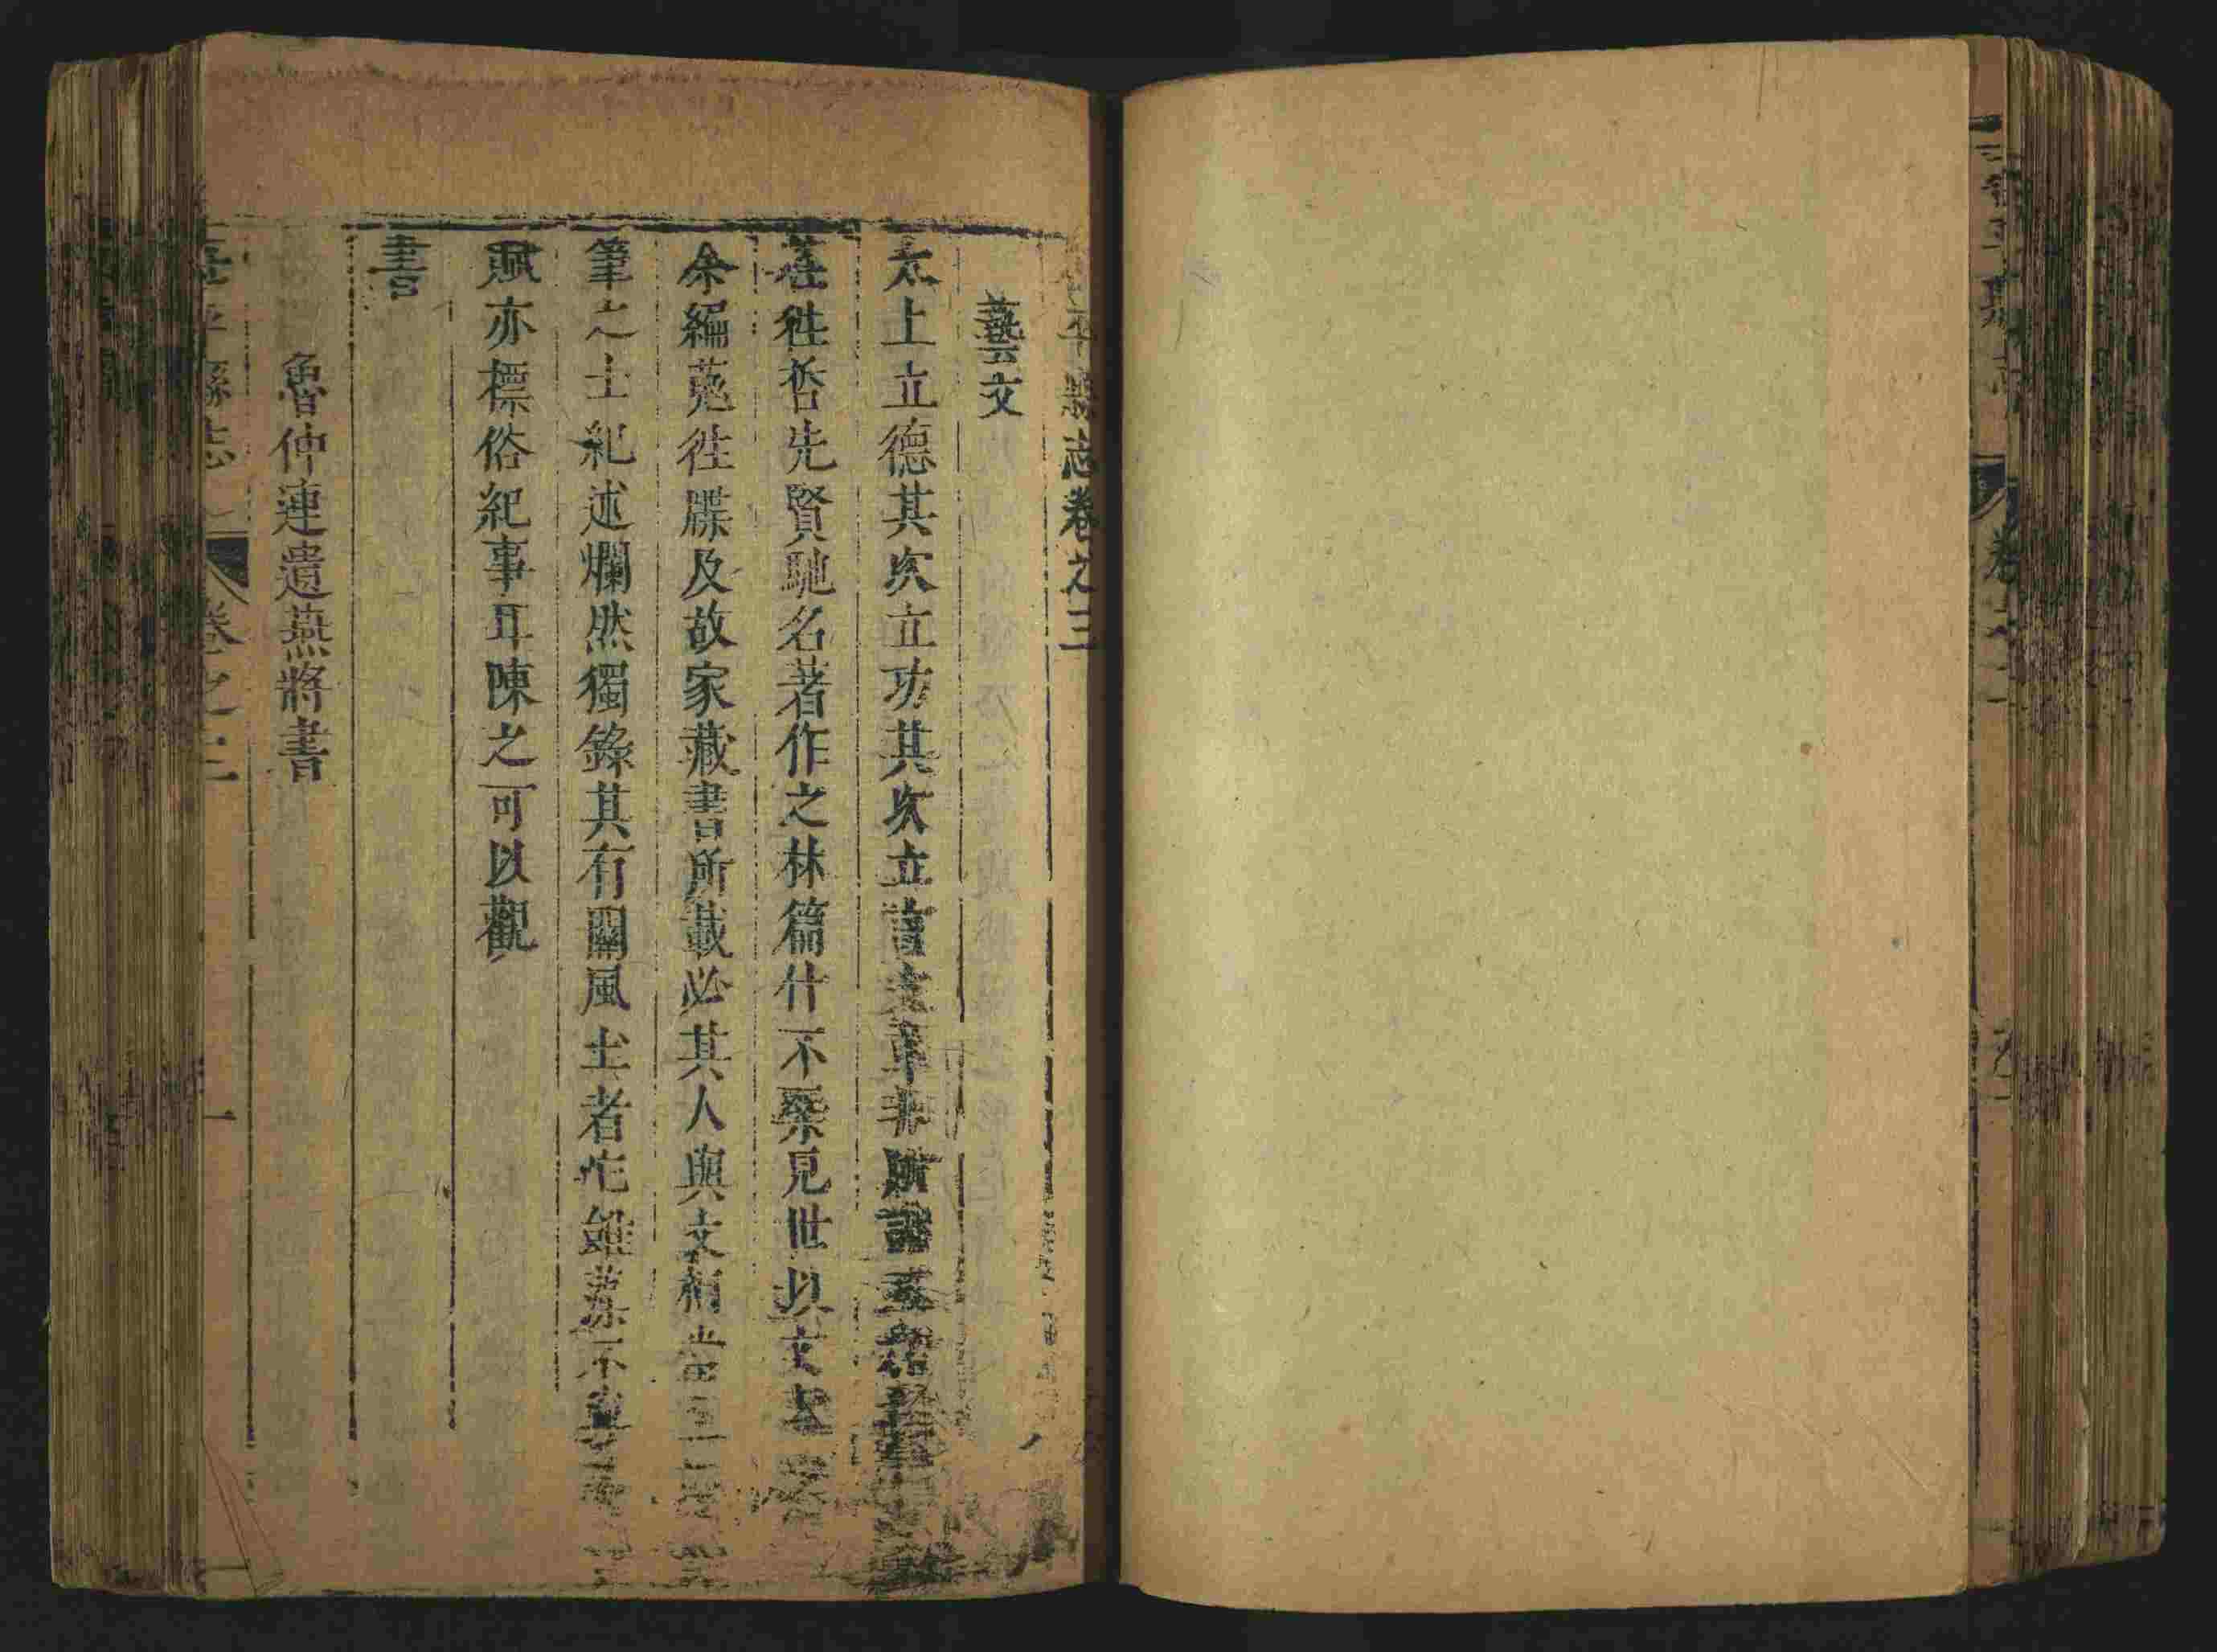 平縣志卷之三
藝文
太上立德其次立功其次立言文章非所
茌徃哲先賢馳名著作之林篇什不槩見世以文
余編蒐徃牒及故家藏書所載必其人與文相當
筆之士紀述爛然獨錄其有關風土者它雖
賦亦標俗紀事耳陳之可以觀
書
魯仲連遺燕將書
茌平縣志
卷之三
一
茌平縣志
卷之二